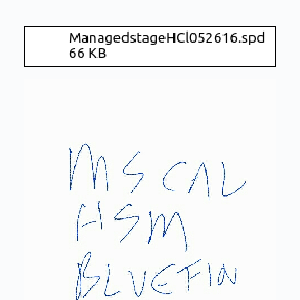 ManagedstageHCl052616.spd
66 KB
MSCAL
HSM
BLUEFIN